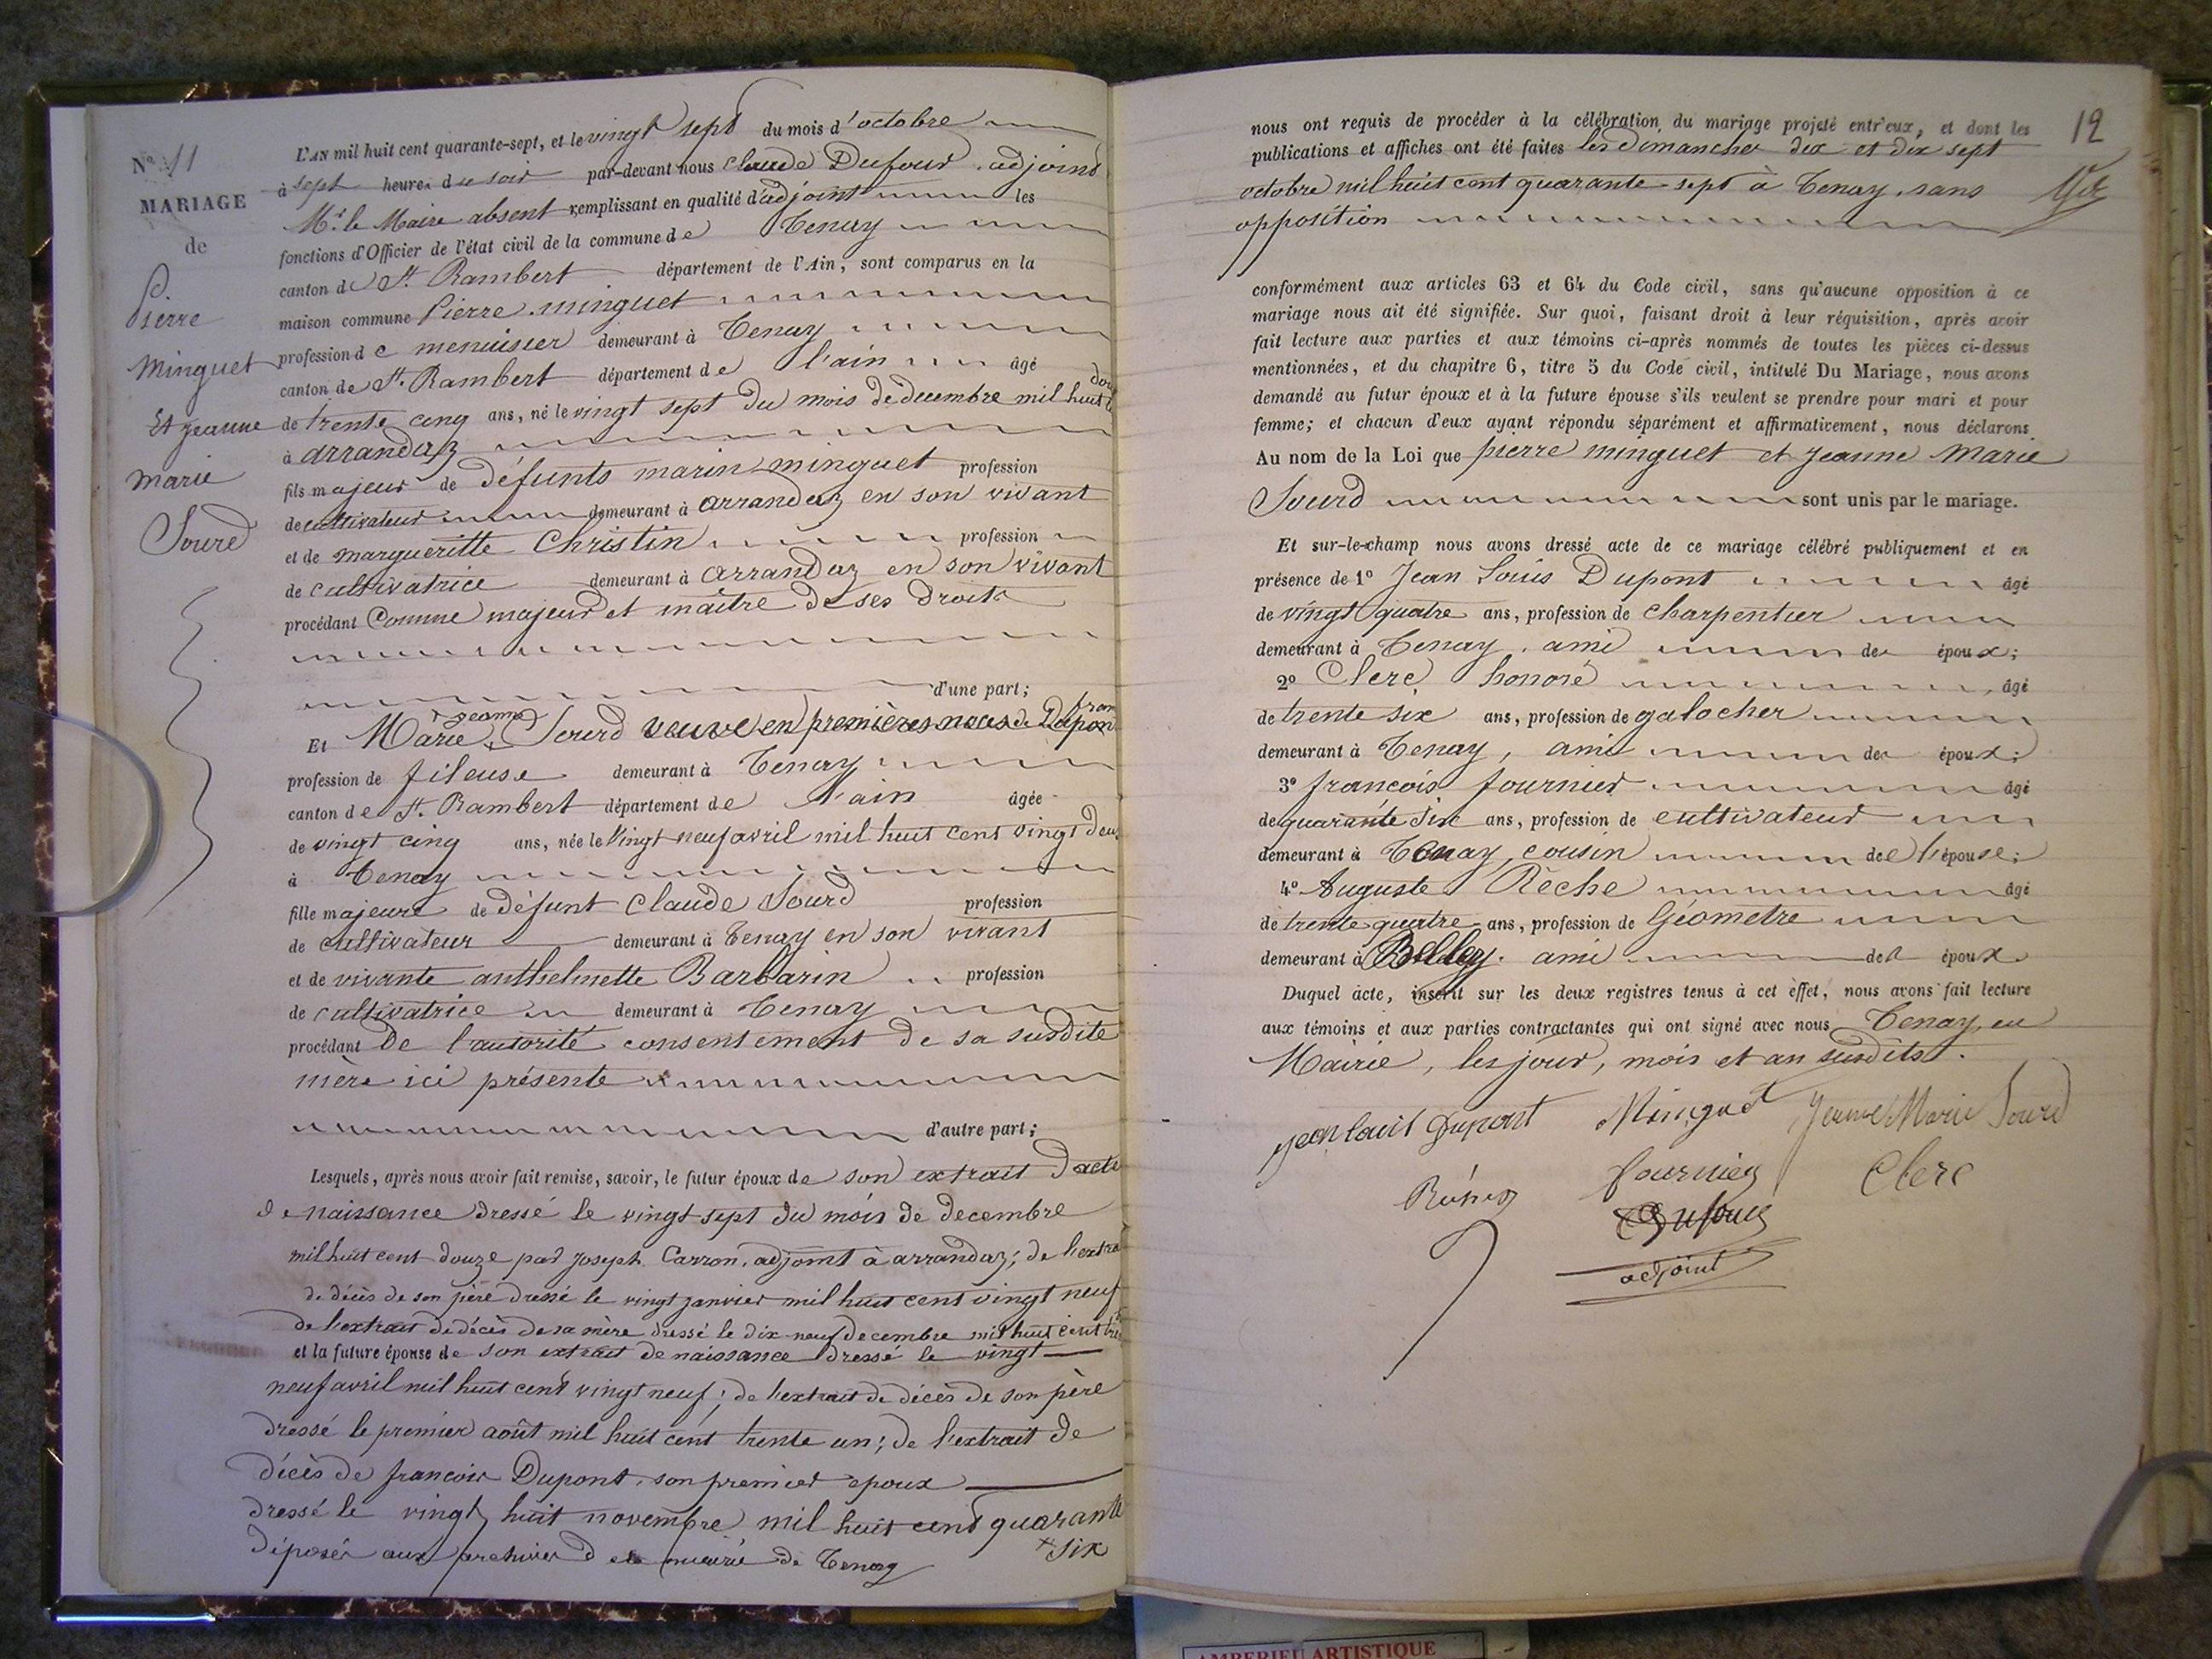 N° 11
MARIAGE
de
Pierre
Minguet
Et jeanne
marie
Sourd
L'AN mil huit cent quarante-sept, et le vingt sept du mois d'octobre
à sept heures du soir par-devant nous claude Dufour, adjoint
Mr. le Maire absent remplissant en qualité d'adjoint les
fonctions d'Officier de l'état civil de la commune de Tenay
canton de St. Rambert département de l'Ain, sont comparus en la
maison commune Pierre minguet
profession de menuisier demeurant à Tenay
canton de St. Rambert département de l'ain âgé
de trente cinq ans, né le vingt sept du mois de decembre mil huit c
à arrandaz
fils majeur de défunts marin minguet profession
de cultivateur demeurant à arrandaz en son vivant
et de margueritte Christin profession
de cultivatrice demeurant à arrandaz en son vivant
procédant Comme majeur et maître de ses droits
d'une part;
jeanne
Et Marie Sourd veuve en premières noces de Dupon
profession de fileuse demeurant à Tenay
canton de St. Rambert département de l'ain âgée
de vingt cinq ans, née le vingt neuf avril mil huit cent vingt deux
à Tenay
fille majeure de défunt Claude Sourd profession
de cultivateur demeurant à Tenay en son vivant
et de vivante anthelmette Barbarin profession
de cultivatrice demeurant à Tenay
procédant De l'autorité consentement de sa susdite
mère ici présente
d'autre part;
Lesquels, après nous avoir fait remise, savoir, le futur époux de son extrait d'acte
de naissance dressé le vingt-sept du mois de decembre
mil huit cent douze par joseph Carron, adjoint à arrandaz; de l'extra
de décès de son père dressé le vingt janvier mil huit cent vingt neuf
de l'extrait de décès de sa mère dressé le dix-neuf decembre mil huit cent
et la future épouse de son extrait de naissance dressé le vingt
neuf avril mil huit cent vingt neuf; de l'extrait de décès de son père
dressé le premier août mil huit cent trente un; de l'extrait de
décès de francois Dupont, son premier epoux
dressé le vingt huit novembre mil huit cent quarante
six
déposés aux archives de la mairie de Tenay
12
nous ont requis de procéder à la célébration du mariage projeté entr'eux, et dont les
publications et affiches ont été faites les dimanches dix et dix sept
octobre mil huit cent quarante-sept à Tenay, sans
opposition
conformément aux articles 63 et 64 du Code civil, sans qu'aucune opposition à ce
mariage nous ait été signifiée. Sur quoi, faisant droit à leur réquisition, après avoir
fait lecture aux parties et aux témoins ci-après nommés de toutes les pièces ci-dessus
mentionnées, et du chapitre 6, titre 5 du Code civil, intitulé Du Mariage, nous avons
demandé au futur époux et à la future épouse s'ils veulent se prendre pour mari et pour
femme; et chacun d'eux ayant répondu séparément et affirmativement, nous déclarons
Au nom de la Loi que pierre minguet et Jeanne Marie
Sourd sont unis par le mariage.
Et sur-le-champ nous avons dressé acte de ce mariage célébré publiquement et en
présence de 1° Jean Louis Dupont âgé
de vingt quatre ans, profession de charpentier
demeurant à Tenay, ami des époux;
2° Clerc honoré âgé
de trente six ans, profession de galocher
demeurant à Tenay, ami des époux;
3° francois fournier âgé
de quarante six ans, profession de cultivateur
demeurant à Tenay, cousin de l'épouse;
4° Auguste Rêche âgé
de trente quatre ans, profession de Géometre
demeurant à Belley. ami des époux
Duquel acte, inscrit sur les deux registres tenus à cet effet, nous avons fait lecture
aux témoins et aux parties contractantes qui ont signé avec nous Tenay, en
Mairie, les jour, mois et an susdits.
jean louis Dupont Minguet Jeanne Marie Sourd
Fournier Clerc
Dufour
adjoint
AMBERIEU ARTISTIQUE